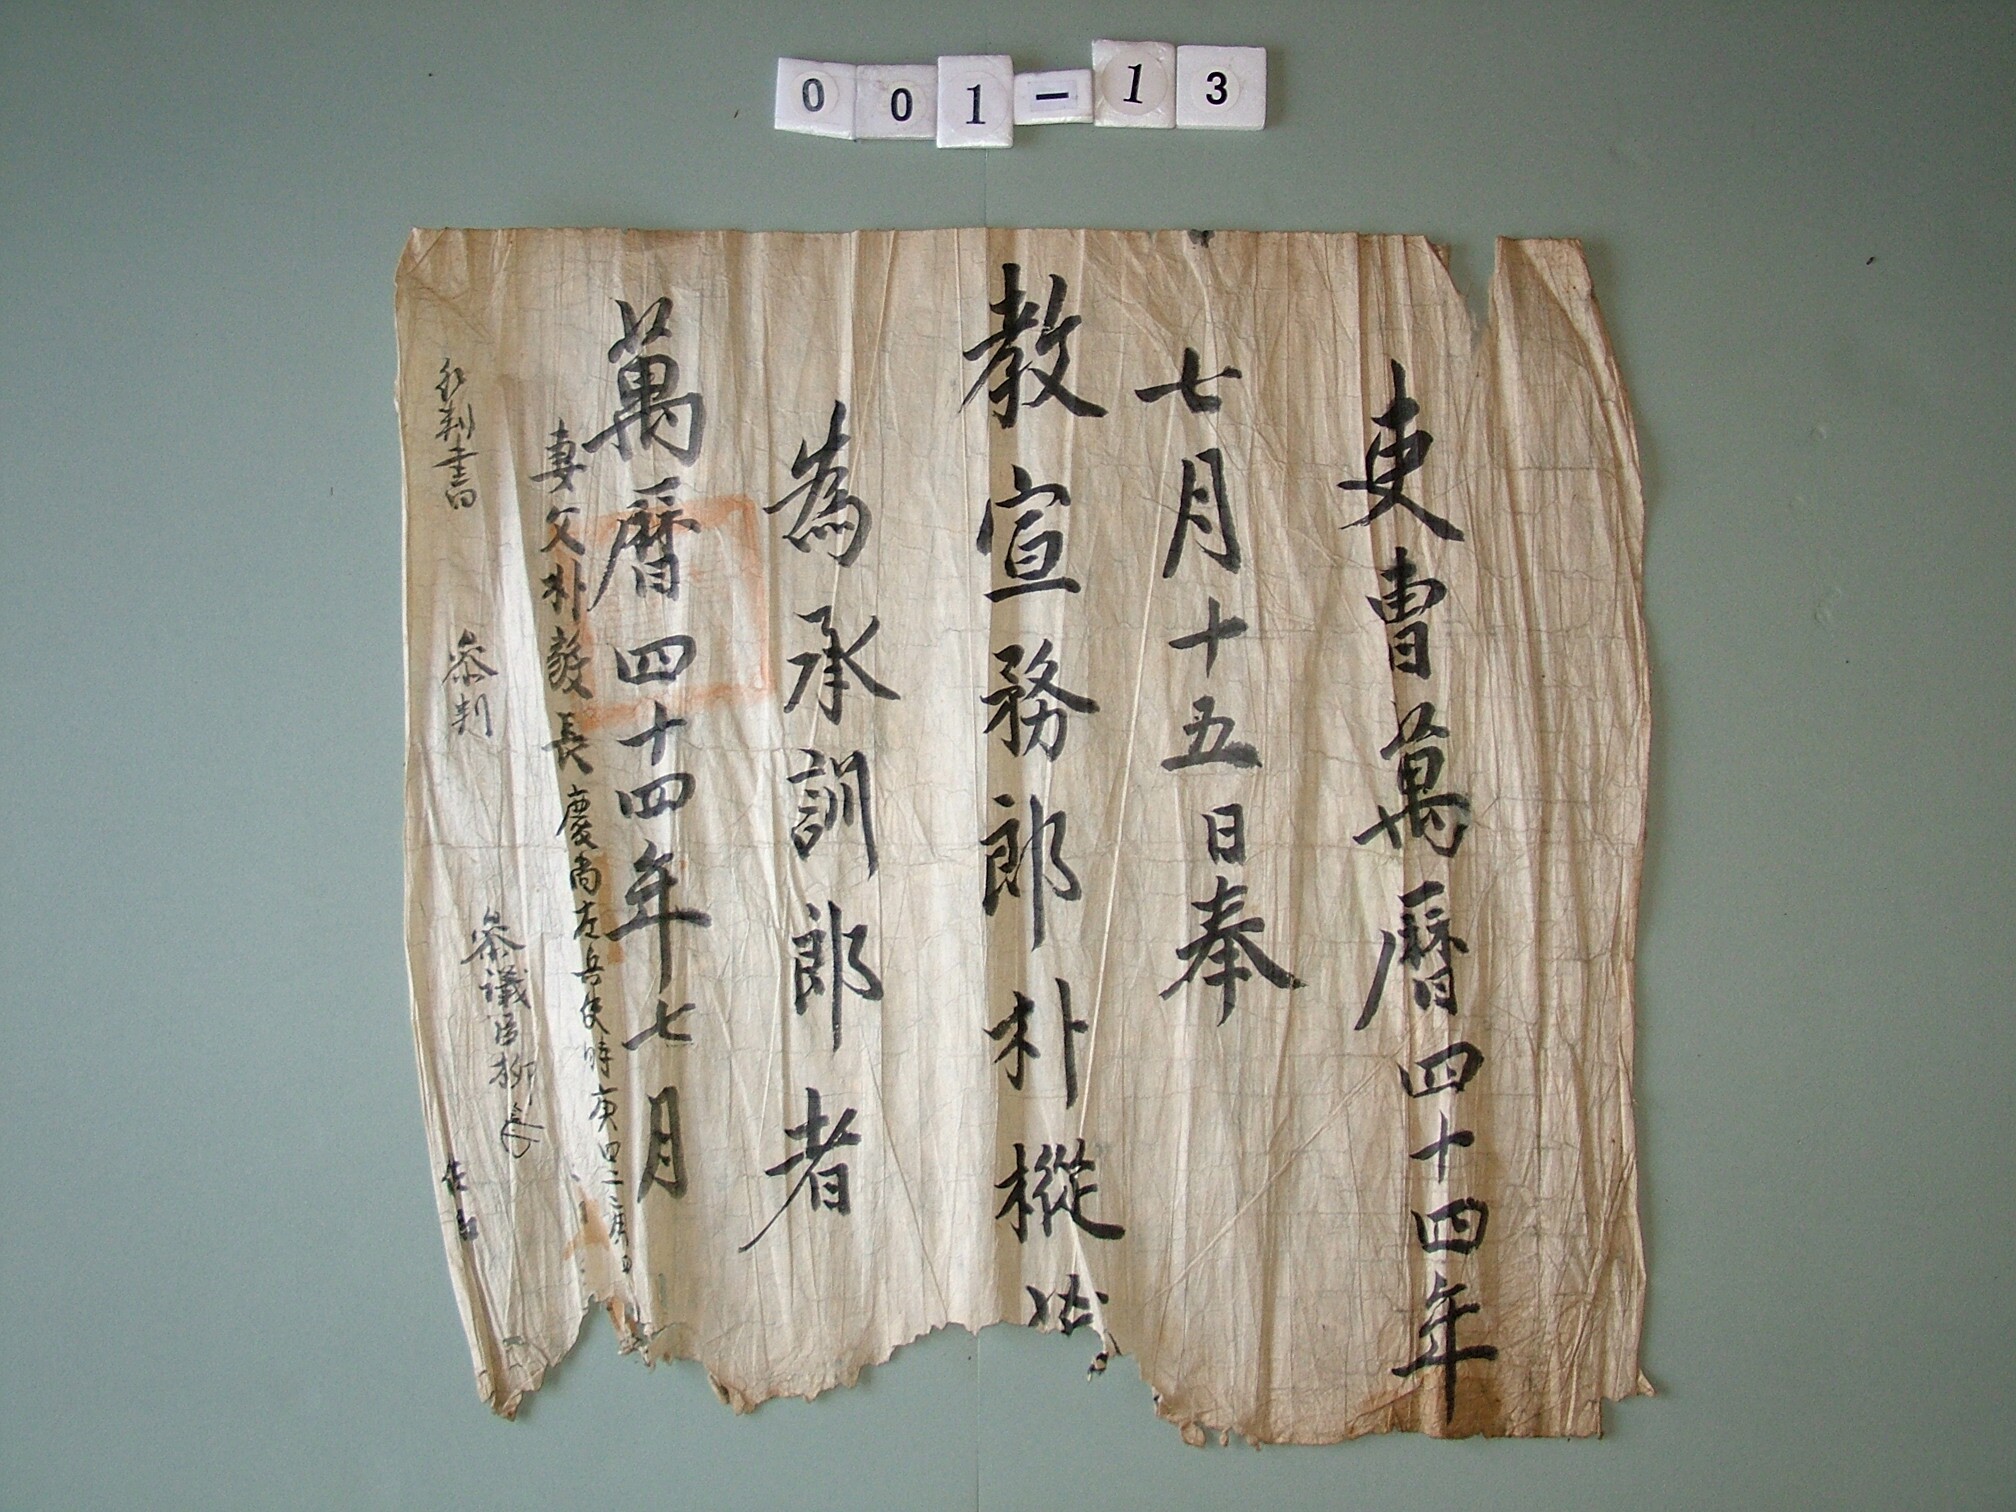 001-13
吏曹萬曆四十四年
七月十五日奉
教宣務郎朴樅茂
為承訓郎者
萬曆四十四年七月
妻父朴毅長慶尚左兵使時庚四二三月
行判書 參判 參議臣柳 佐郎